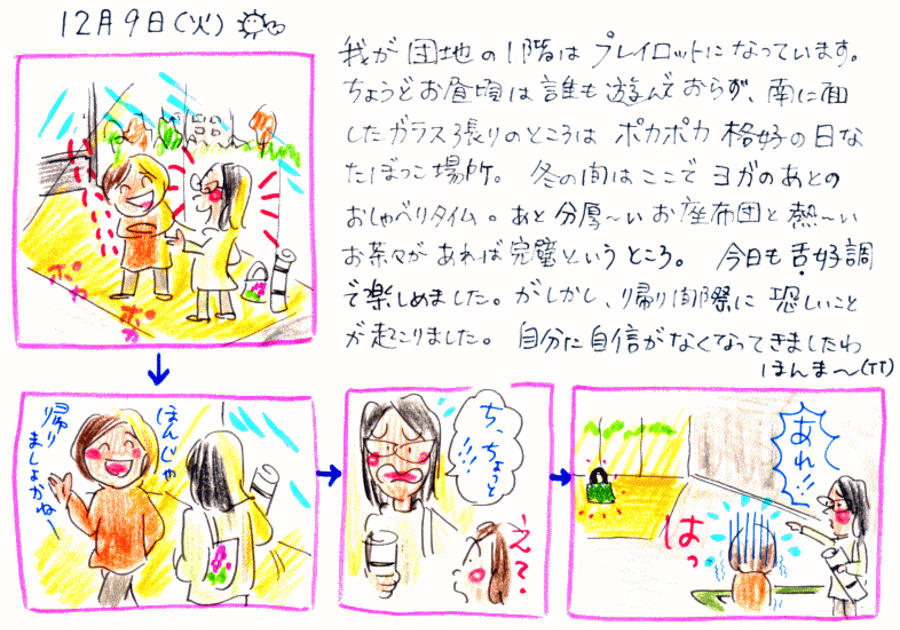 12月9日(火)
我が団地の1階はプレイロットになっています。
ちょうどお昼頃は誰も遊んでおらず、南に面
したガラス張りのところはポカポカ格好の日な
たぼっこ場所。冬の間はここでヨガのあとの
おしゃべりタイム。あと分厚〜いお座布団と熱〜い
お茶々があれば完璧というところ。今日も舌好調
で楽しめました。がしかし、帰り間際に恐しいこと
が起こりました。自分に自信がなくなってきましたわ
ほんま〜(TT)
ポカ
ポカ
ほんじゃ
帰り
ましょかねー
ち、ちょっと
!!!
え?
あれ!!!
はっ